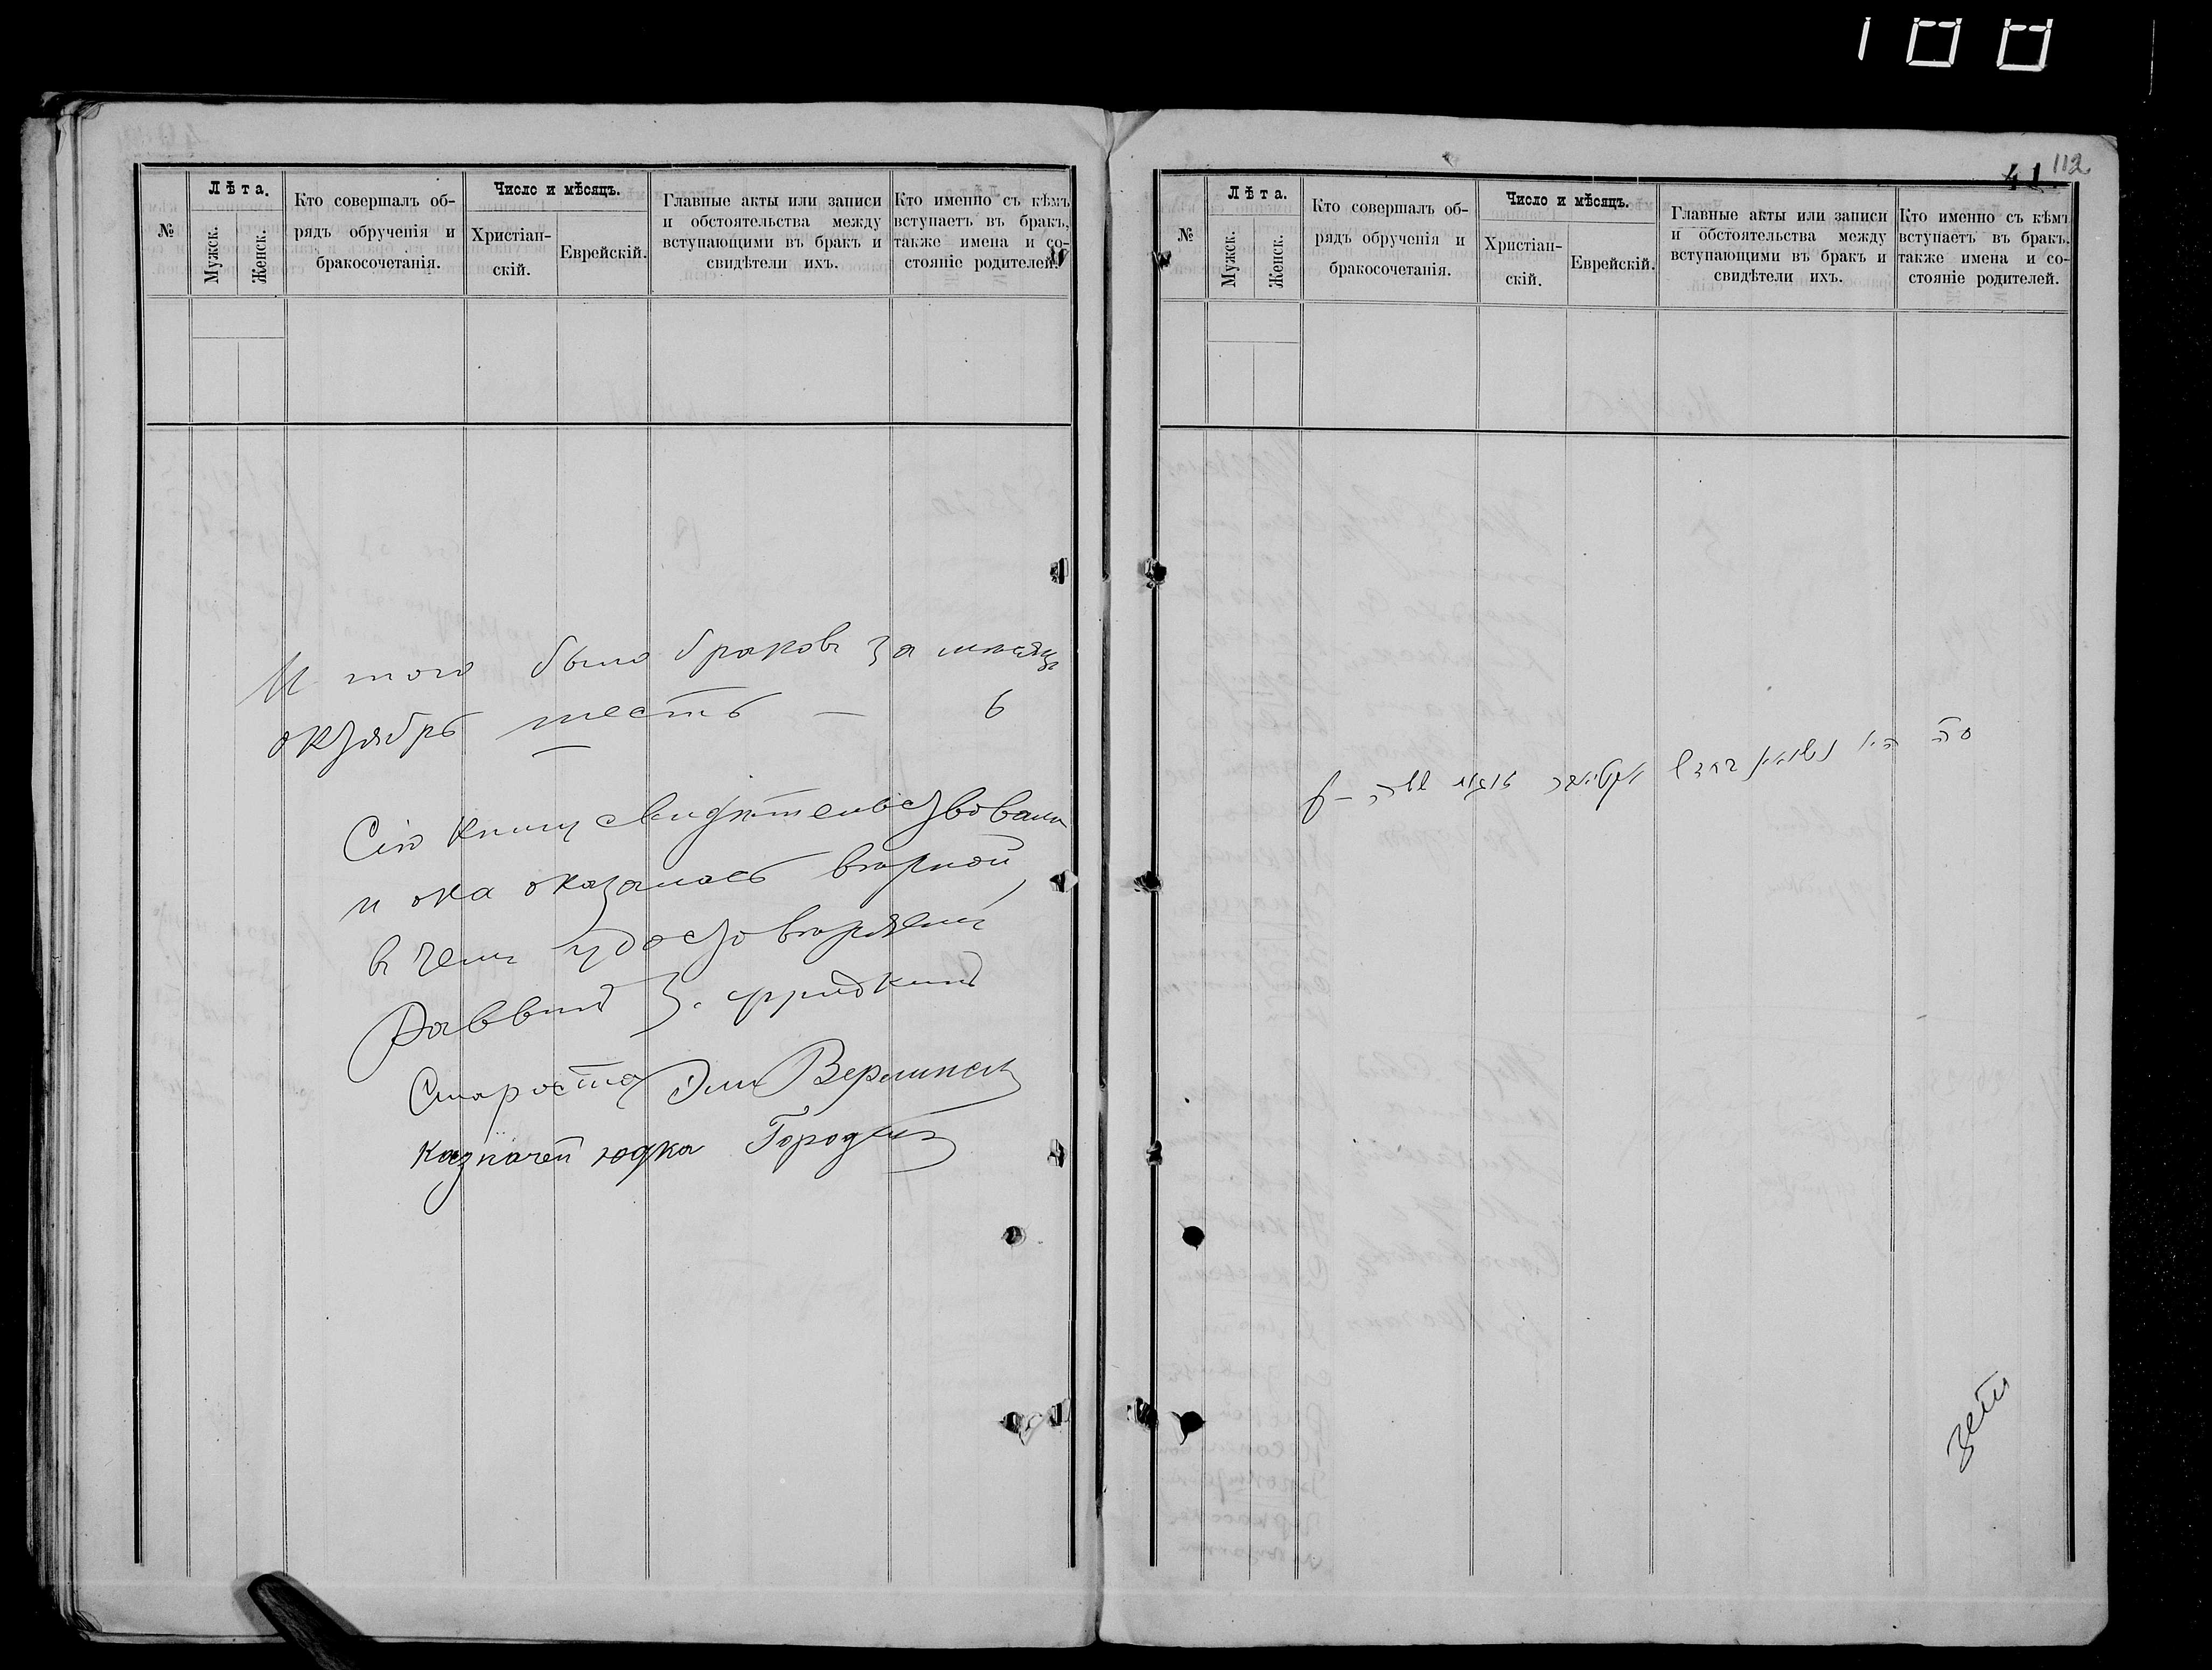 №
Лѣта.
Мужск.
Женск.
Кто совершалъ об-
рядъ обрученія и
бракосочетанія.
Число и мѣсяцъ.
Христіан-
скій.
Еврейскій.
Главные акты или записи
и обстоятельства между
вступающими въ бракъ и
свидѣтели ихъ.
Кто именно съ кѣмъ
вступаетъ въ бракъ,
также имена и со-
стояніе родителей.
И того было браковъ за мѣсяцъ
октябрь шесть — 6
Сію книгу свидѣтельствовали
и она оказалась вѣрной,
в чемъ удостовѣряемъ
Раввинъ З. Фридкинъ
Староста Эли
Казначей Юдка
112
41
№
Лѣта.
Мужск.
Женск.
Кто совершалъ об-
рядъ обрученія и
бракосочетанія.
Число и мѣсяцъ.
Христіан-
скій.
Еврейскій.
Главные акты или записи
и обстоятельства между
вступающими въ бракъ и
свидѣтели ихъ.
Кто именно съ кѣмъ
вступаетъ въ бракъ.
также имена и со-
стояніе родителей.